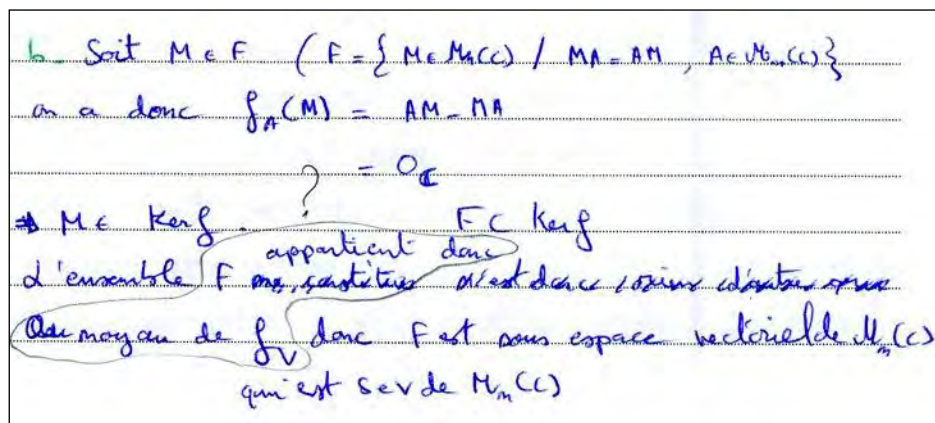 b - Soit M ∈ F ( F = { M ∈ Mn(C) / MA = AM , A ∈ Mn(C) }
on a donc fA(M) = AM - MA
? = 0C
M ∈ Kerf . F ⊂ Kerf
appartient donc
L'ensemble F n'est donc
au noyau de f donc F est sous espace vectoriel de Mn(C)
qui est sev de Mn(C)